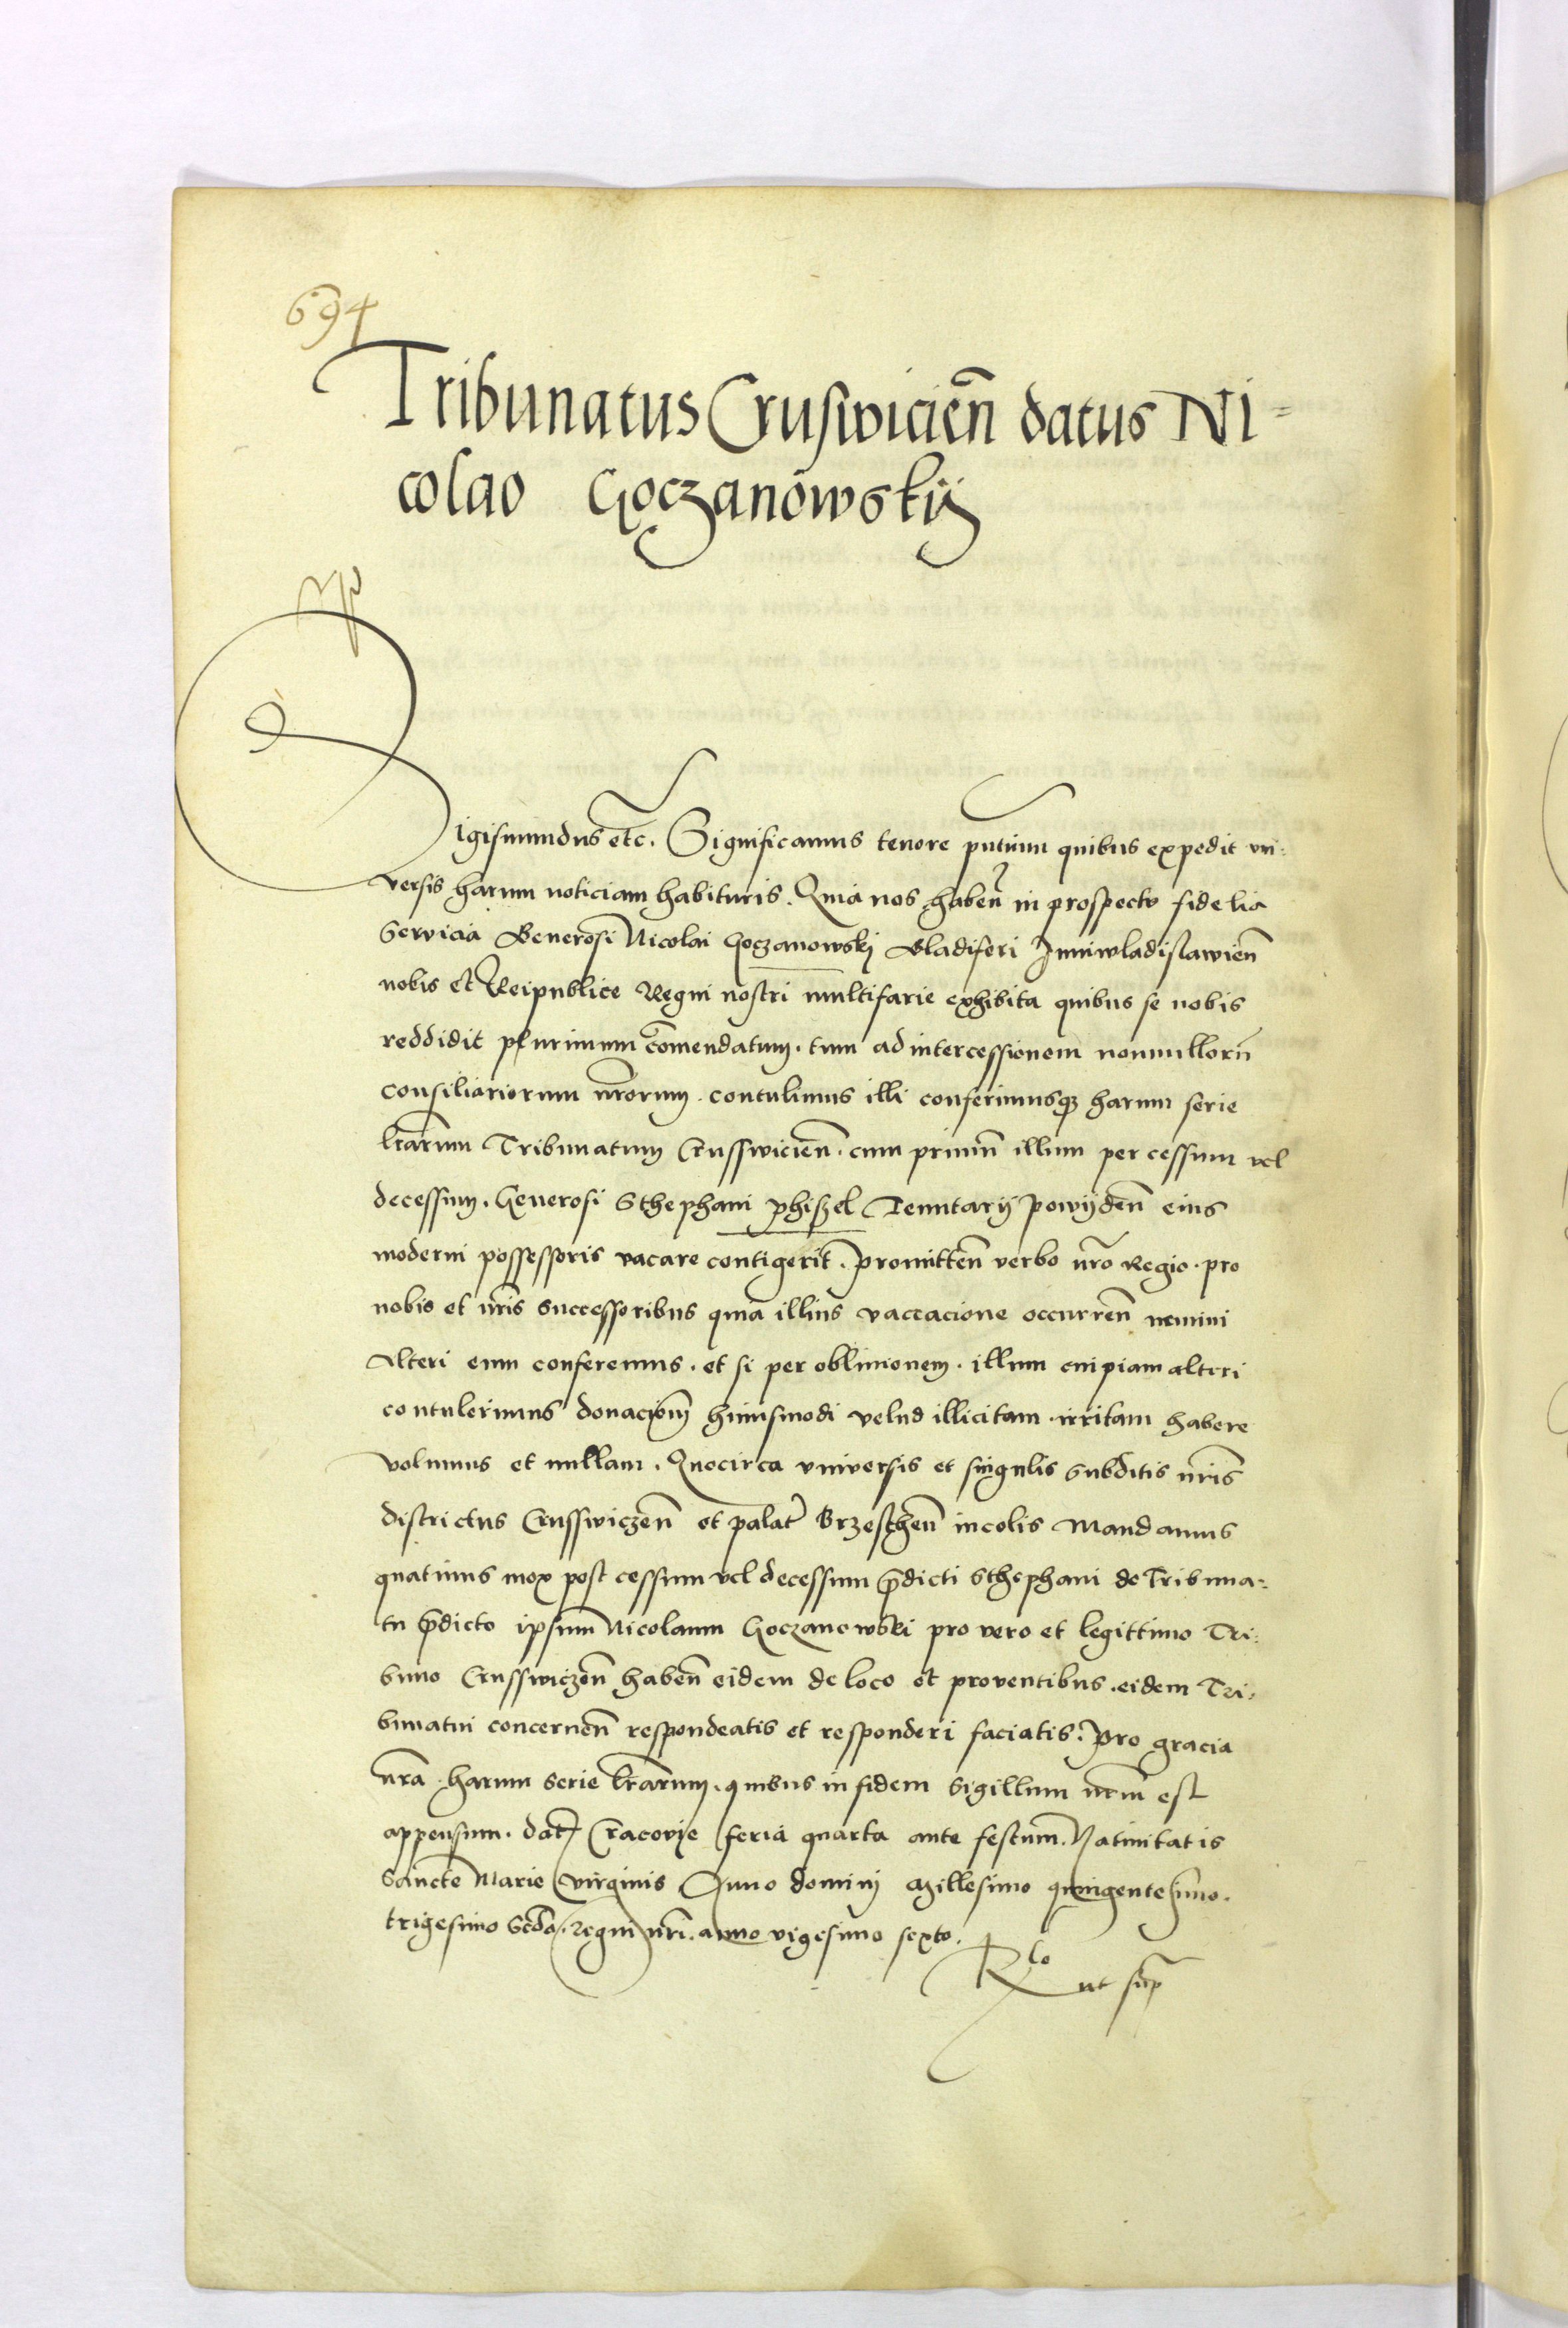 694
Tribunatus Cruswicień datus Ni=
colao Goczanowskij
Sigismundus etc. Significamus tenore pñtium quibus expedit uni:
versis harum noticiam habituris. Quia nos habeñ in prospecto fidelia
servicia Generosi Nicolai Goczanowskj Gladiferi Junivladislawień
nobis et Reipublice Regni nostri multifarie exhibita quibus se nobis
reddidit plurimum cōmendatum. tum ad intercessionem nonnullorū
consiliariorum nr̄orum. contulimus illi conferimusqʒ harum serie
lr̄arum Tribunatum Crusswicień. cum primū illum per cessum vel
decessum. Generosi Sthephani phiszel Tenutarij powijdeñ eius
moderni possessoris vacare contigerit. promitteñ verbo nr̄o Regio. pro
nobis et nr̄is successoribus quia illius vaccacione occurreñ nemini
alteri eum conferemus. et si per oblivionem. illum cuipiam alteri
contulerimus donacionē huiusmodi velud illicitam. irritam habere
volumus et nullam. Quocirca universis et singulis subditis nr̄is
districtus Crusswiczeñ et palat Brzescheñ incolis Mandamus
quatinus mox post cessum vel decessum p̄dicti Sthephani de Tribuna=
tu p̄dicto ipsum Nicolaum Goczanowski pro vero et legittimo Tri:
buno Crusswiczeñ habeñ eidem de loco et proventibus. eidem Tri:
bunatui concerneñ respondeatis et responderi faciatis. pro gracia
nr̄a. harum serie lr̄arum. quibus in fidem Sigillum nr̄um est
appensum. dat Cracovie feria quarta ante festum. Nativitatis
Sancte Marie virginis Anno dominj Millesimo quingentesimo.
trigesimo scdo. regni nr̄i. anno vigesimo sexto.
Rlo ut sup